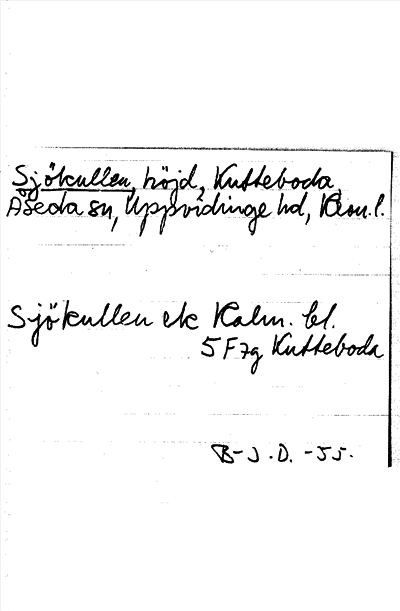 Sjökullen, höjd, Kutteboda,
Åseda sn, Uppvidinge hd, Kron. l.
Sjökullen ek Kalm. bl.
5F7g Kutteboda
B-J.D. -55.